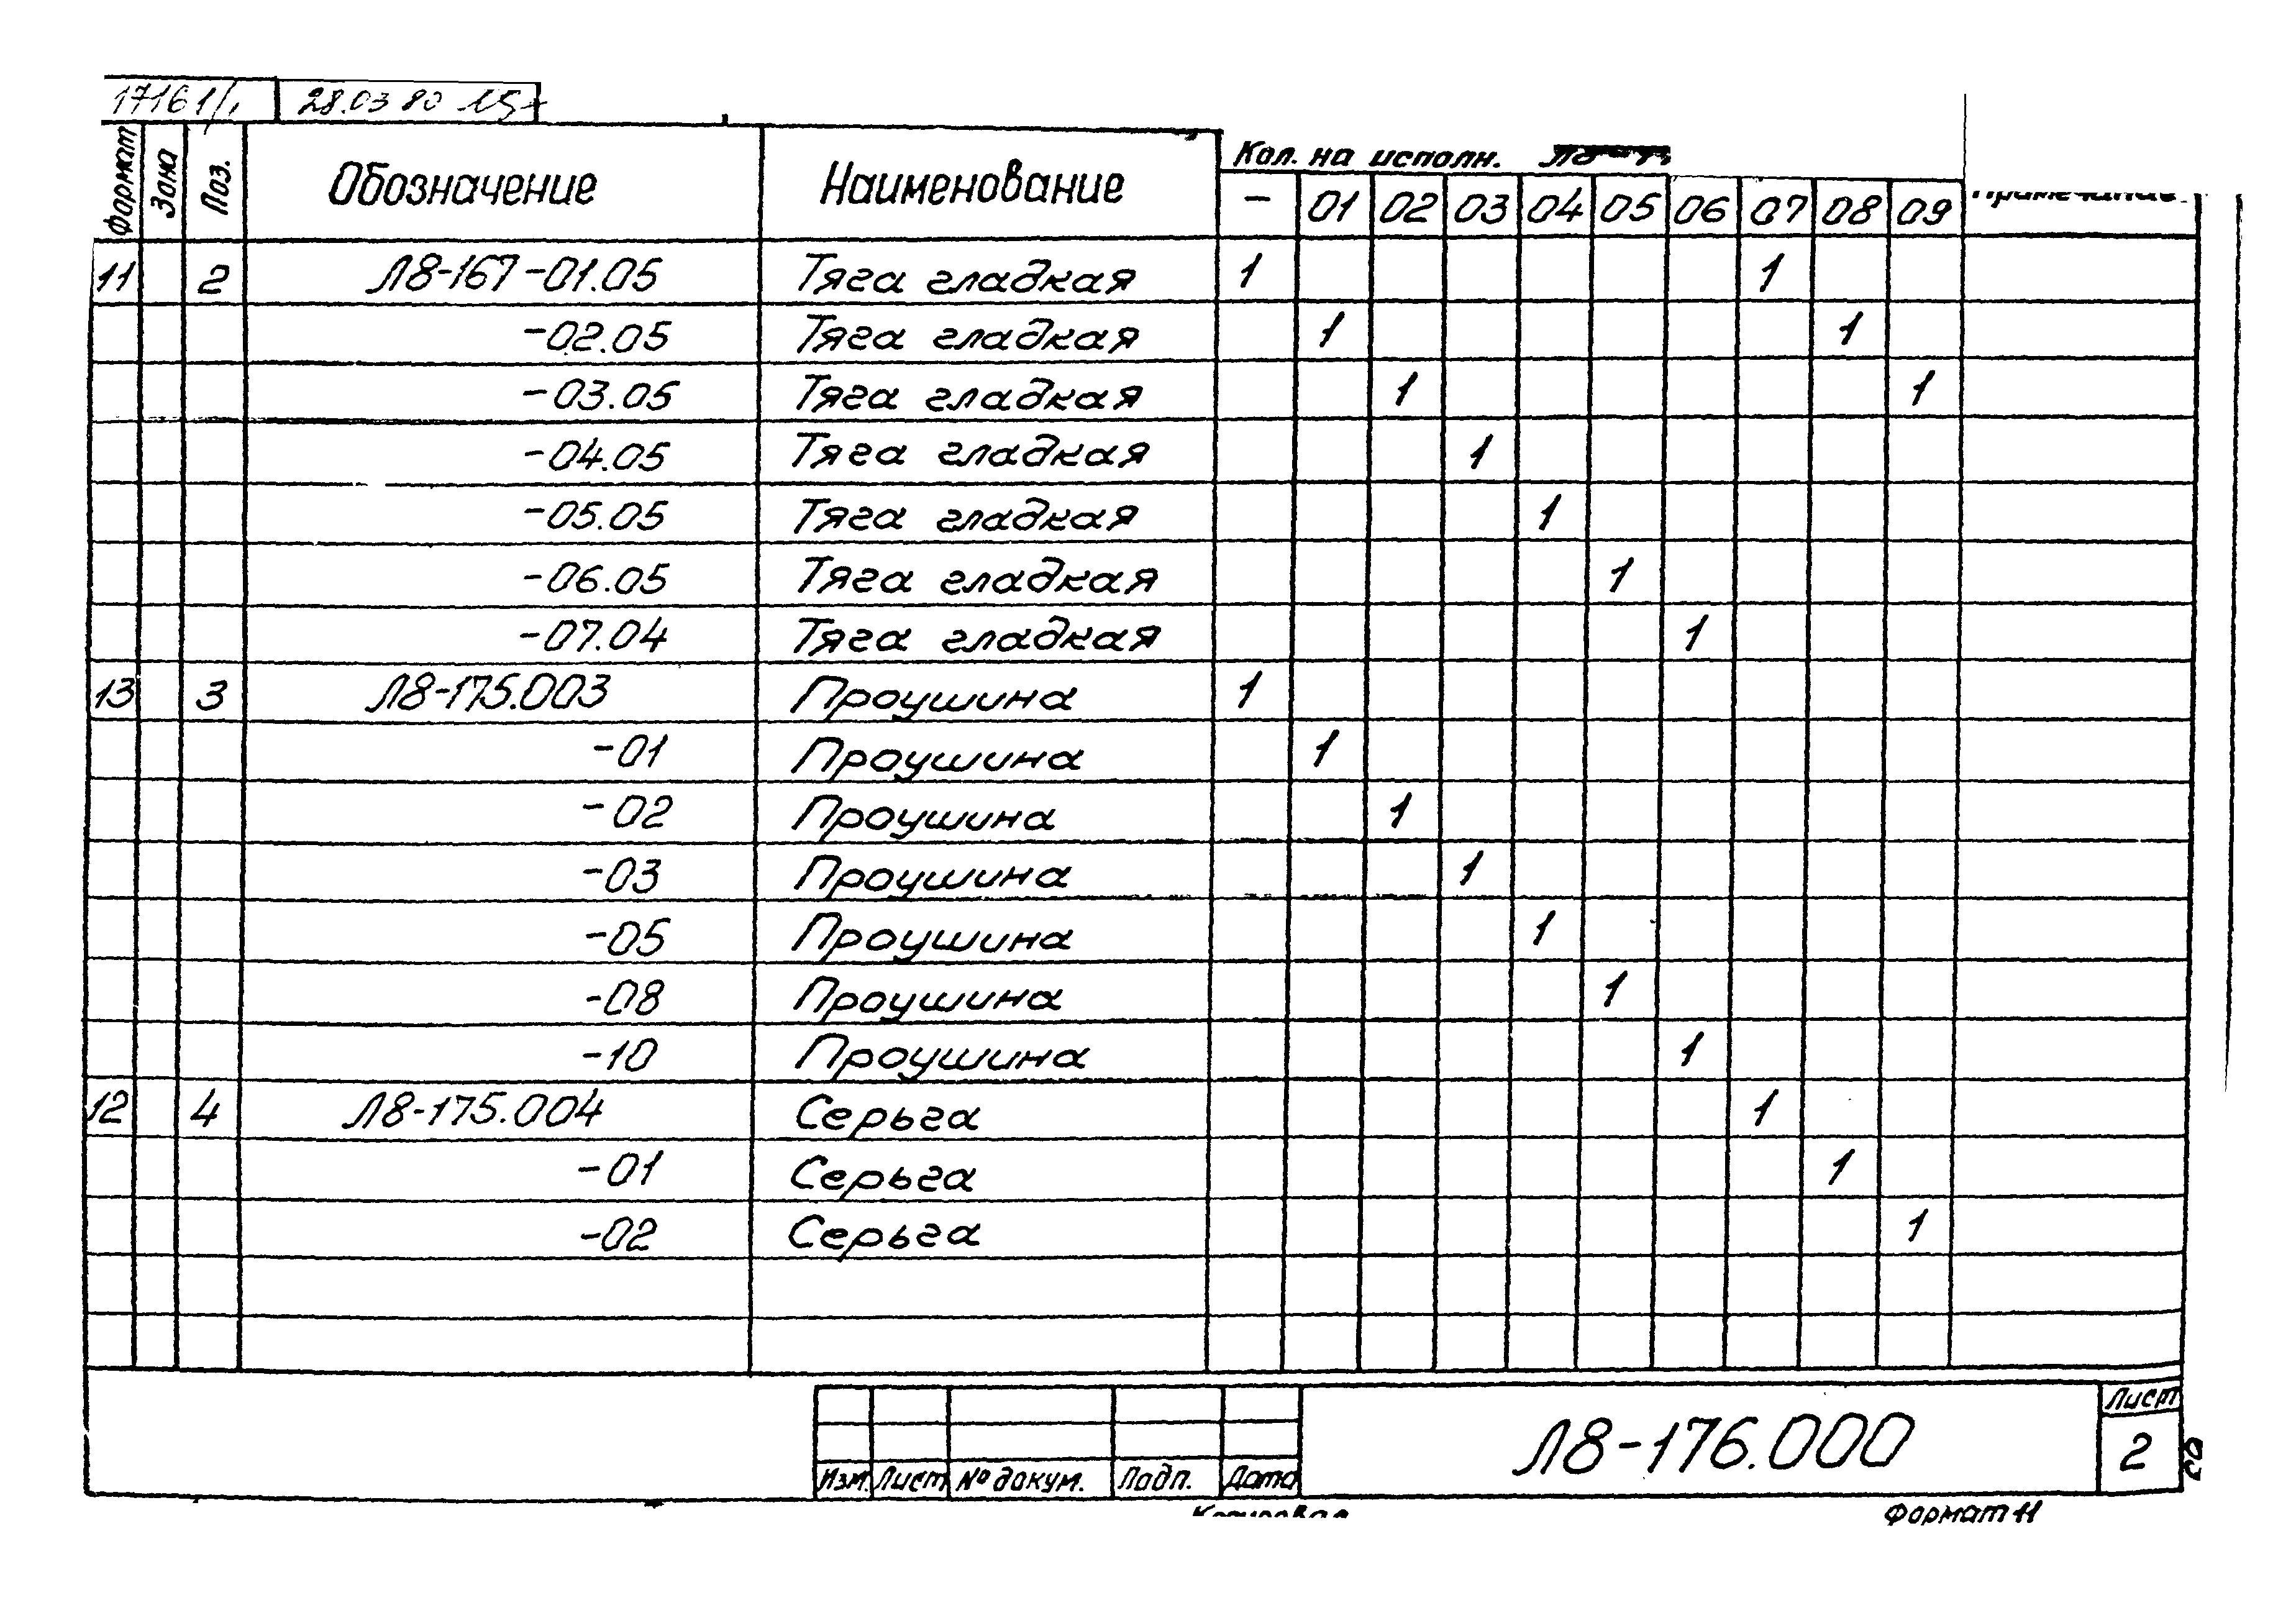 17161/1 28.03 80
Формат Зона Поз. Обозначение Наименование Кол. на исполн. Примечание
– 01 02 03 04 05 06 07 08 09
11 2 Л8-167-01.05 Тяга гладкая 1 1
-02.05 Тяга гладкая 1 1
-03.05 Тяга гладкая 1 1
-04.05 Тяга гладкая 1
-05.05 Тяга гладкая 1
-06.05 Тяга гладкая 1
-07.04 Тяга гладкая 1
13 3 Л8-175.003 Проушина 1
-01 Проушина 1
-02 Проушина 1
-03 Проушина 1
-05 Проушина 1
-08 Проушина 1
-10 Проушина 1
12 4 Л8-175.004 Серьга 1
-01 Серьга 1
-02 Серьга 1
Изм. Лист № докум. Подп. Дата
Л8-176.000
Лист
2
Копировал Формат 11